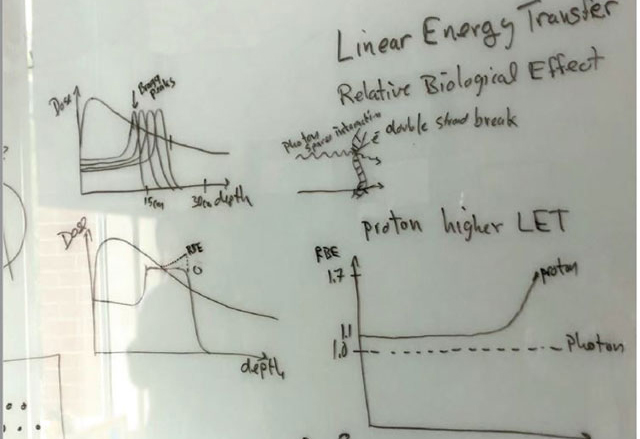 Linear Energy Transfer
Relative Biological Effect
Dose
Bragg
peaks
15cm
30cm
depth
Photon
sparse interaction
double strand break
proton higher LET
Dose
RBE
depth
RBE
1.7
proton
1.1
1.0
Photon